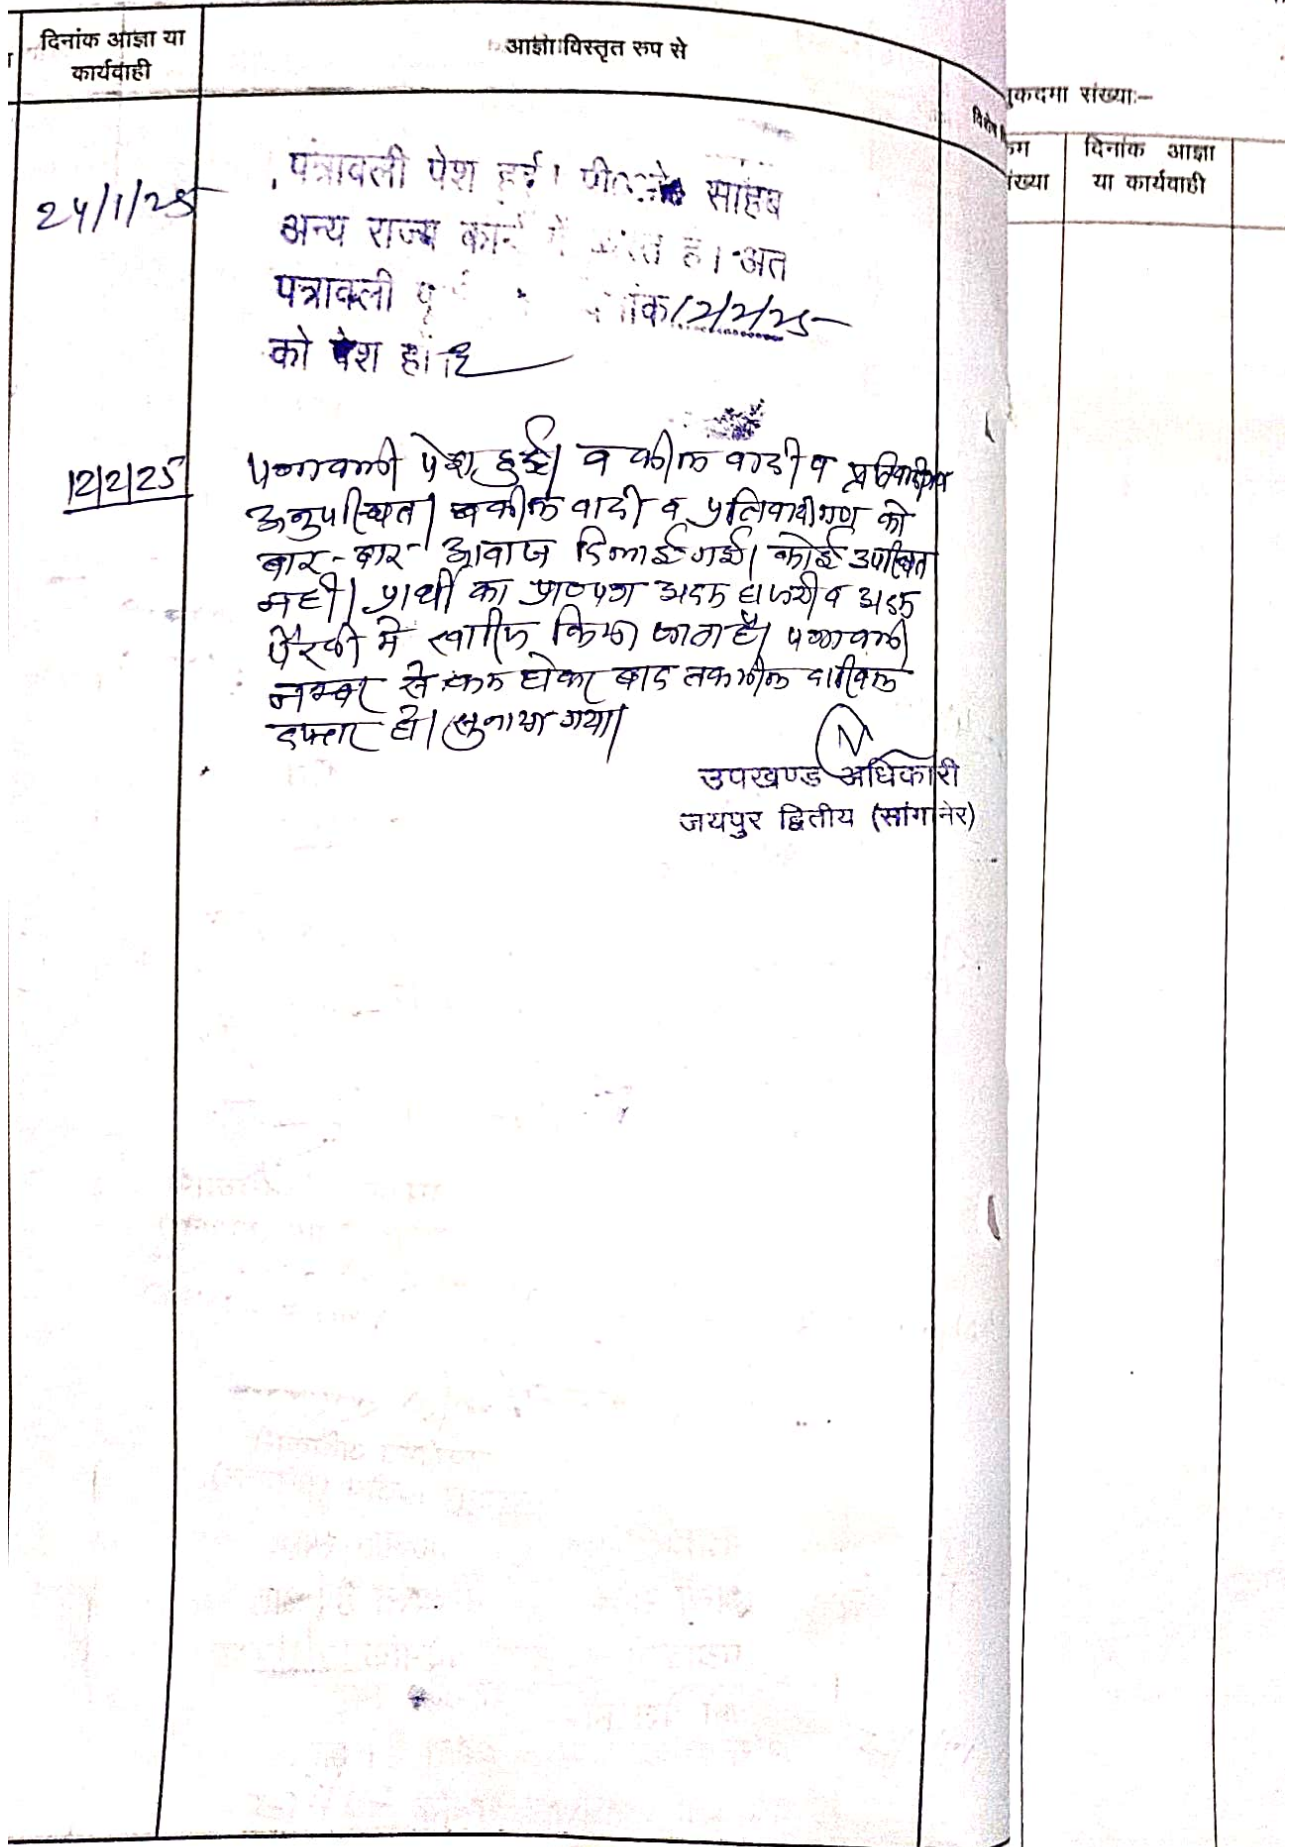 दिनांक आज्ञा या
कार्यवाही
आज्ञा विस्तृत रुप से
24/1/25
पत्रावली पेश हुई। साहब
अन्य राज्य कार्य में है। अत
पत्रावली 12/2/25
को पेश हो।
12/2/25
पत्रावली पेश हुई। वकील वादी व प्रतिवादीगण
अनुपस्थित। वकील वादी व प्रतिवादीगण को
बार-बार आवाज दिलाई गई। कोई उपस्थित
नही। प्रार्थी का प्रा०पत्र अदम हाजरी व अदम
पैरवी मे खारिज किया जाता है। पत्रावली
नम्बर से कम होकर बाद तकमील दाखिल
दफ्तर हो। सुनाया गया।
उपखण्ड अधिकारी
जयपुर द्वितीय (सांगानेर)
ुकदमा संख्या:–
दिनांक आज्ञा
या कार्यवाही